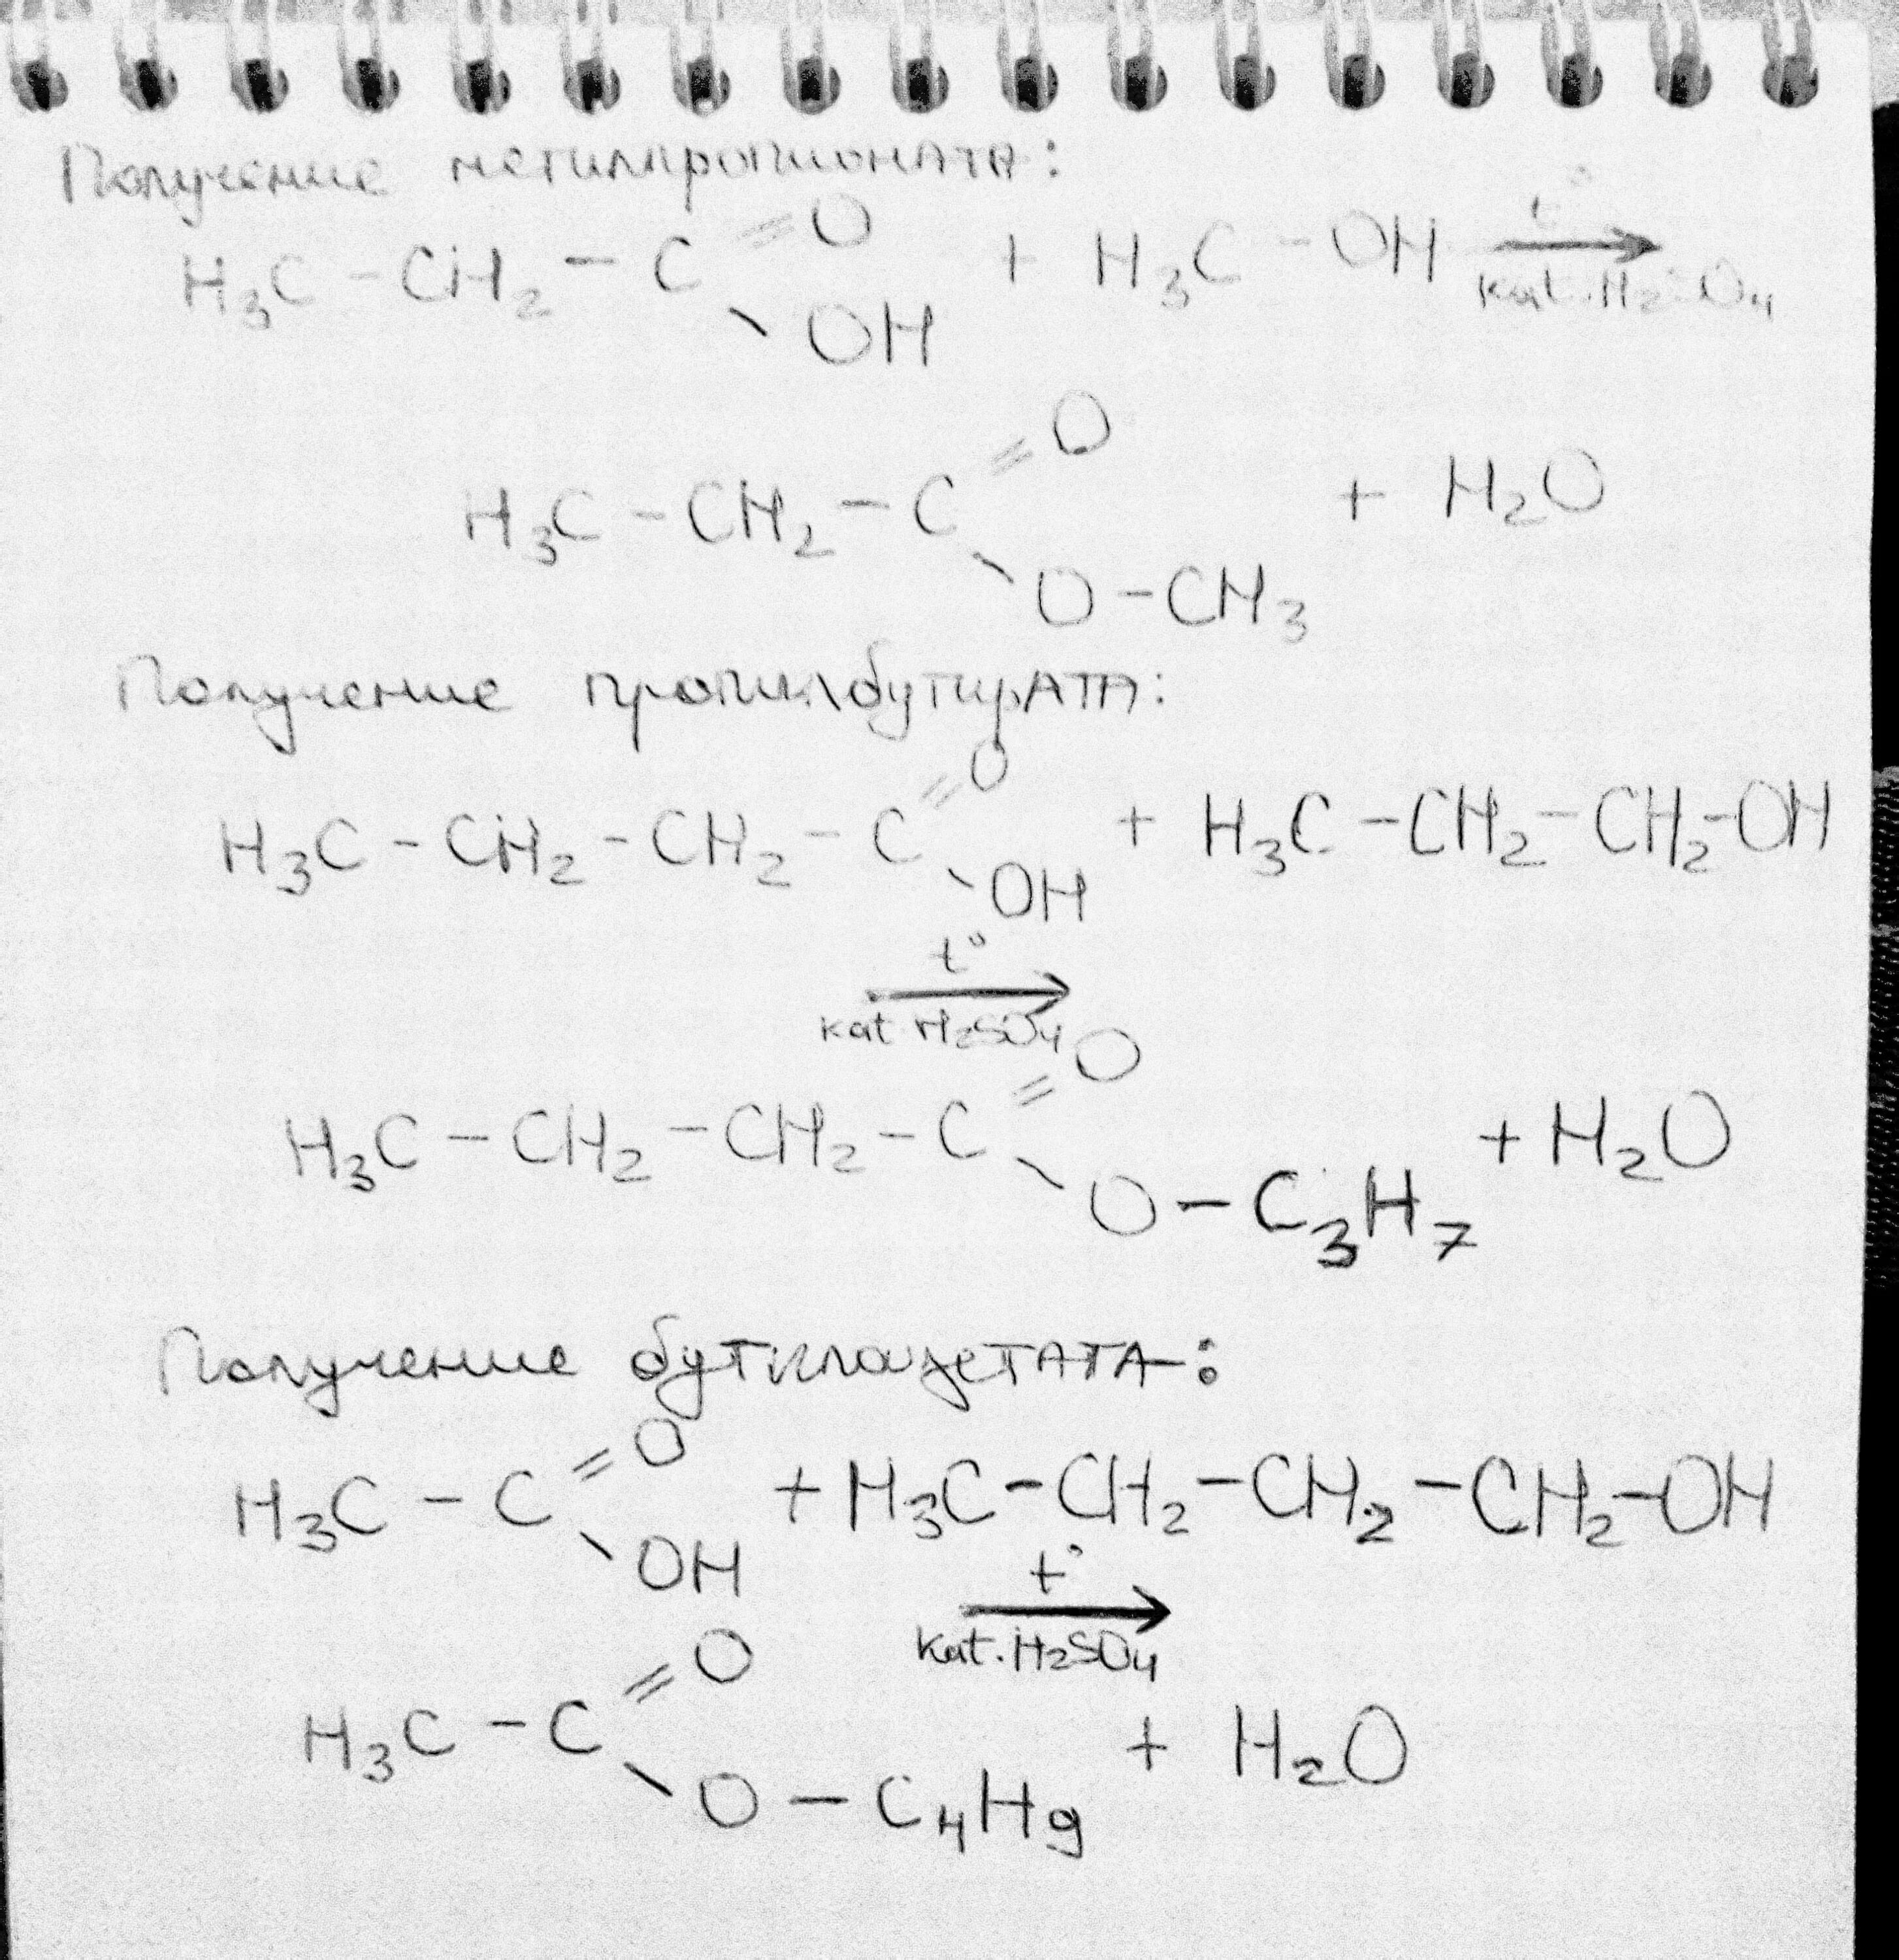 Получение метилпропионата:
H₃C - CH₂ - C =O -OH + H₃C - OH t° → kat. H₂SO₄
H₃C - CH₂ - C =O -O - CH₃ + H₂O
Получение пропилбутирата:
H₃C - CH₂ - CH₂ - C =O -OH + H₃C - CH₂ - CH₂ - OH
t° → kat. H₂SO₄
H₃C - CH₂ - CH₂ - C =O -O - C₃H₇ + H₂O
Получение бутилацетата:
H₃C - C =O -OH + H₃C - CH₂ - CH₂ - CH₂ - OH
t° → kat. H₂SO₄
H₃C - C =O -O - C₄H₉ + H₂O